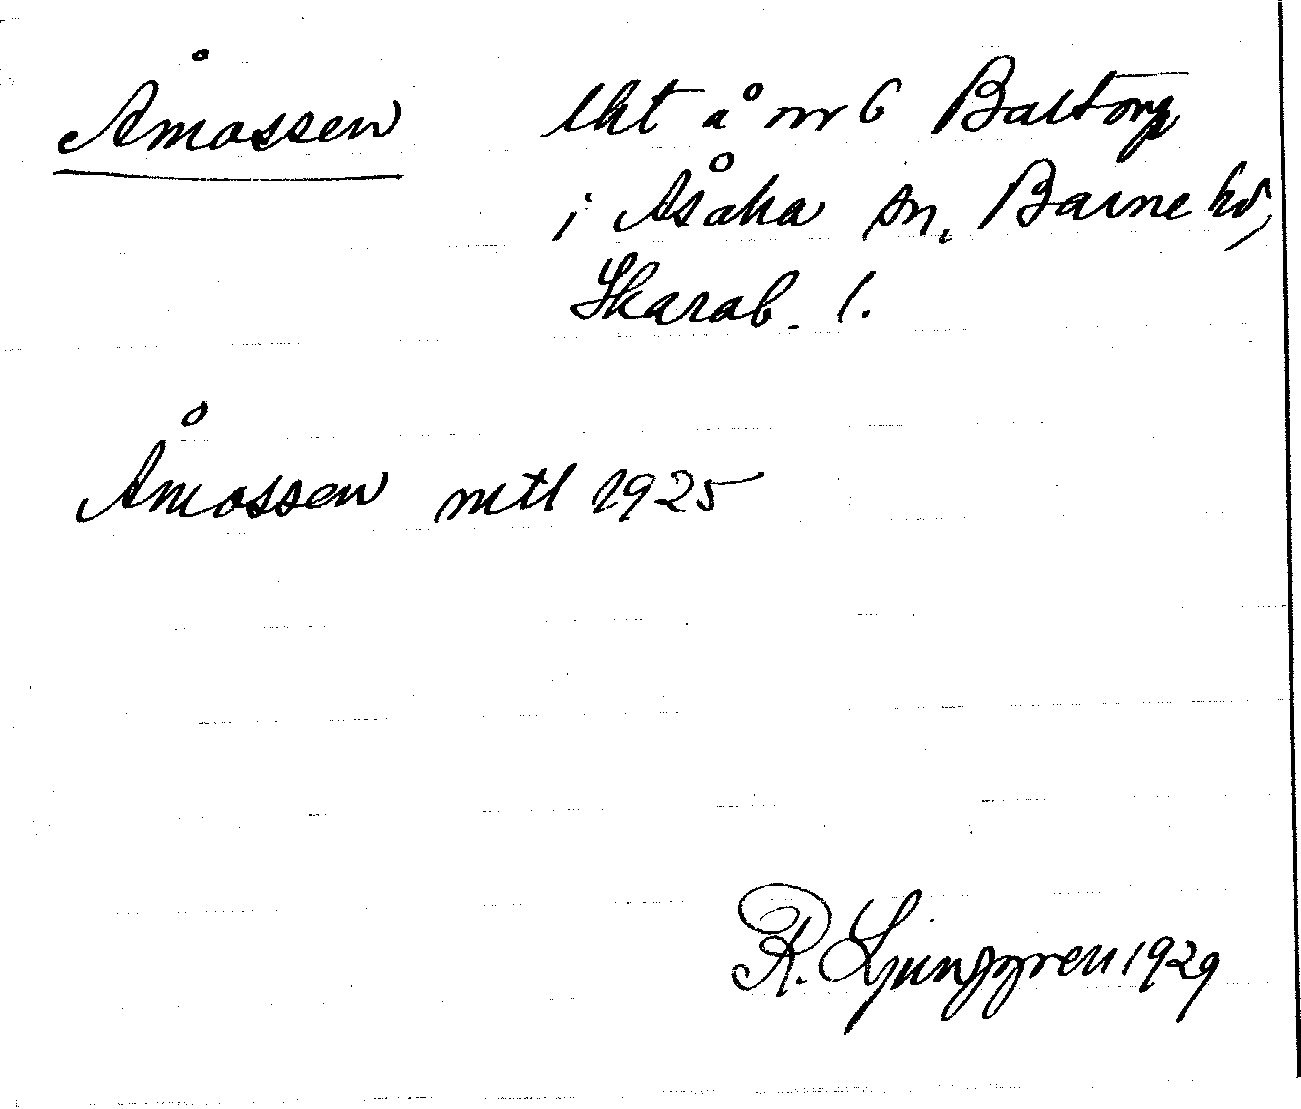 Åmossen lht å nr 6 Baltorp
i Åsaka sn, Barne hd,
Skarab. l.
Åmossen mtl 1925
R. Ljunggren 1929